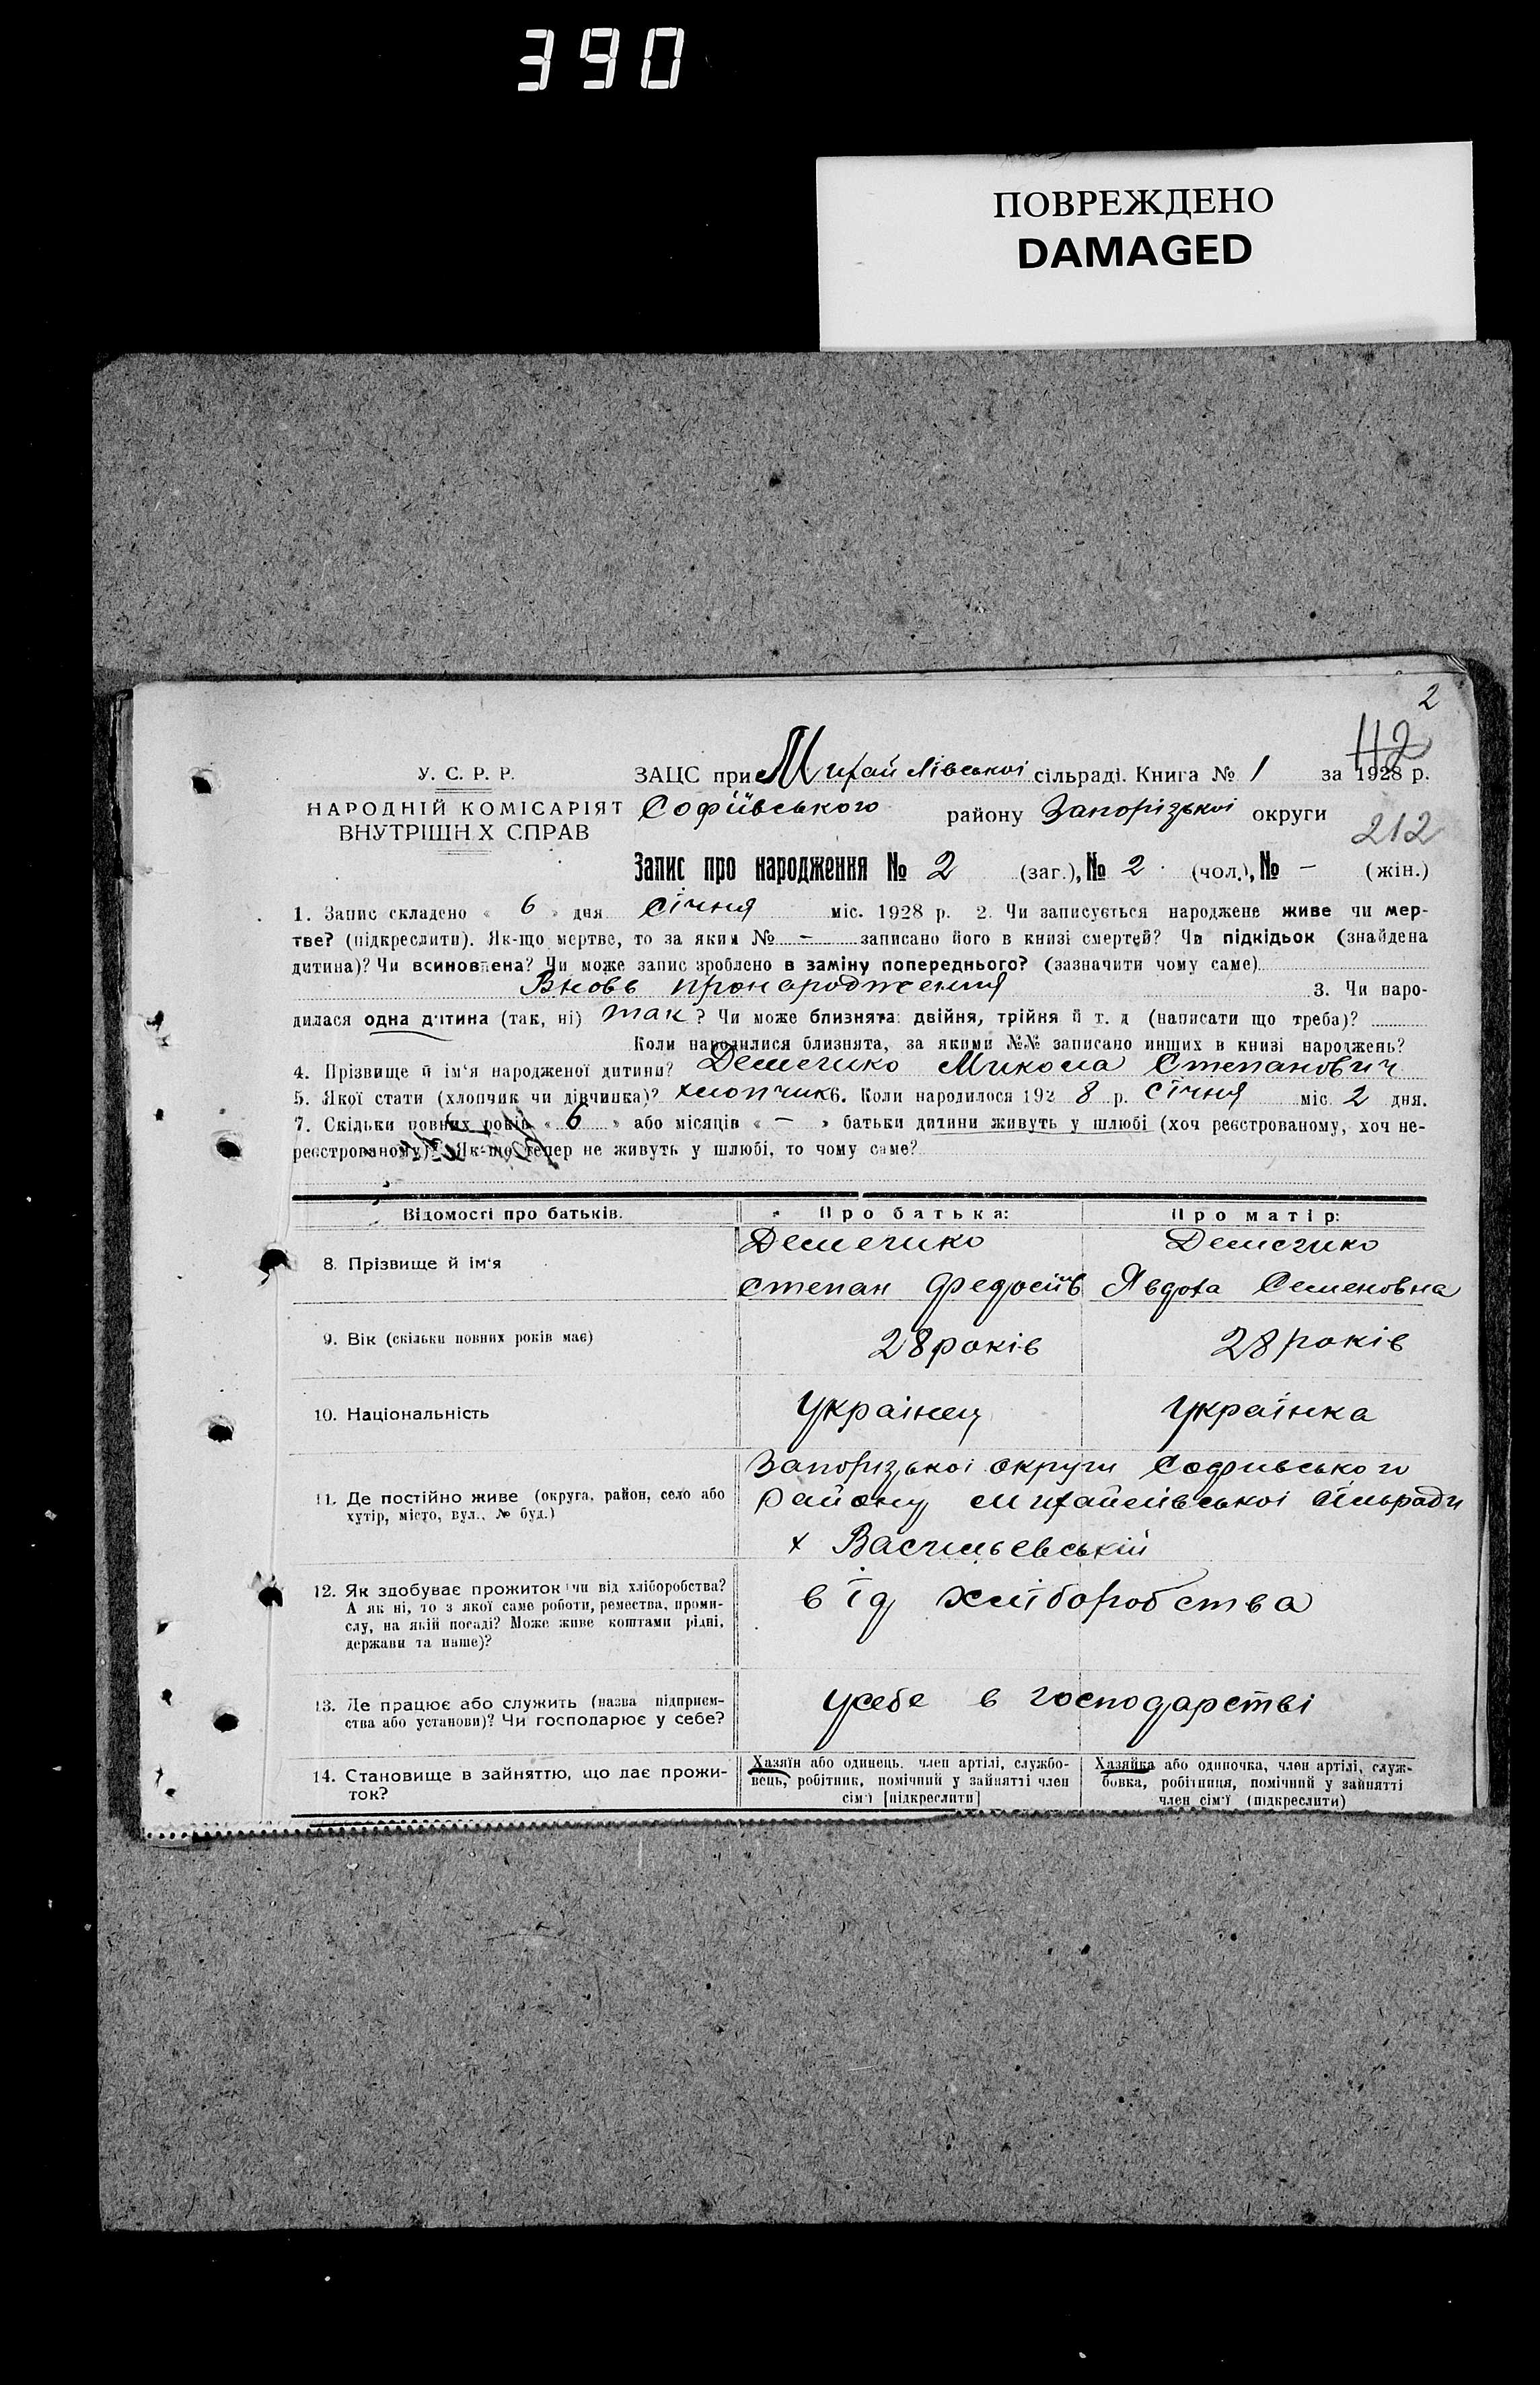 390
ПОВРЕЖДЕНО
DAMAGED
2
112
У. С. Р. Р. ЗАЦС при Михайлівської сільраді. Книга № 1 за 1928 р.
НАРОДНІЙ КОМІСАРІЯТ Софіївського району Запорізької округи
ВНУТРІШН Х СПРАВ
212
Запис про народження № 2 (заг.), № 2 (чол.), № – (жін.)
1. Запис складено « 6 » дня Січня міс. 1928 р. 2. Чи записується народжене живе чи мер-
тве? (підкреслити). Як-що мертве, то за яким № – записано його в книзі смертей? Чи підкідьок (знайдена
дитина)? Чи всиновлена? Чи може запис зроблено в заміну попереднього? (зазначити чому саме)
Вновь пронародження 3. Чи наро-
дилася одна дитина (так, ні) так ? Чи може близнята: двійня, трійня й т. д (написати що треба)?
Коли народилися близнята, за якими №№ записано инших в книзі народжень?
4. Прізвище й ім'я народженої дитини? Демечико Микола Степанович
5. Якої стати (хлопчик чи дівчинка)? хлопчик 6. Коли народилося 192 8 р. Січня міс. 2 дня.
7. Скільки повних років « 6 » або місяців « – » батьки дитини живуть у шлюбі (хоч реєстрованому, хоч не-
реєстрованому)? Як-що тепер не живуть у шлюбі, то чому саме?
Відомості про батьків. Про батька: Про матір:
8. Прізвище й ім'я Демечико Демечико
Степан Федосіїв Явдоха Семеновна
9. Вік (скільки повних років має) 28 років 28 років
10. Національність Українец Українка
11. Де постійно живе (округа, район, село або
хутір, місто, вул., № буд.)
Запорізької округи Софиівського
Району Михайлівської сільради
х Васильевській
12. Як здобуває прожиток чи від хліборобства?
А як ні, то з якої саме роботи, ремества, проми-
слу, на якій посаді? Може живе коштами рідні,
держави та инше)?
від хліборобства
13. Де працює або служить (назва підприєм-
ства або установи)? Чи господарює у себе?
усебе в господарстві
14. Становище в зайняттю, що дає прожи-
ток?
Хазяїн або одинець, член артілі, службо-
вець, робітник, помічний у зайнятті член
сім'ї [підкреслити]
Хазяйка або одиночка, член артілі, служ-
бовка, робітниця, помічний у зайнятті
член сім'ї (підкреслити)